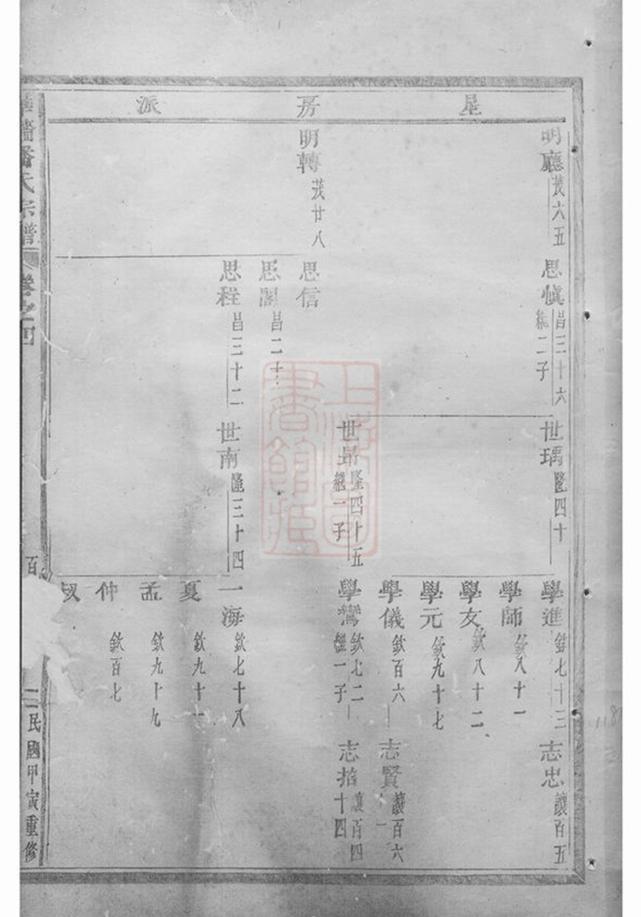 星房派
明廳 茂六五
思慎 昌三十六 繼二子
世瑀 隆四十
學進 欽七十三
志忠 讓百五
學師 欽八十一
學友 欽八十二
學元 欽九十七
學儀 欽百六
志賢 讓百六
世昂 隆四十五 繼一子
學鸞 欽七二 繼一子
志 讓百四十四
明轉 茂廿八
思信
思 昌二十
思程 昌三十二
世南 隆三十四
一海 欽七十八
夏 欽九十
孟 欽九十九
仲 欽百七
潘氏宗譜
卷之四
百
二
民國甲寅重修
上海圖書館藏